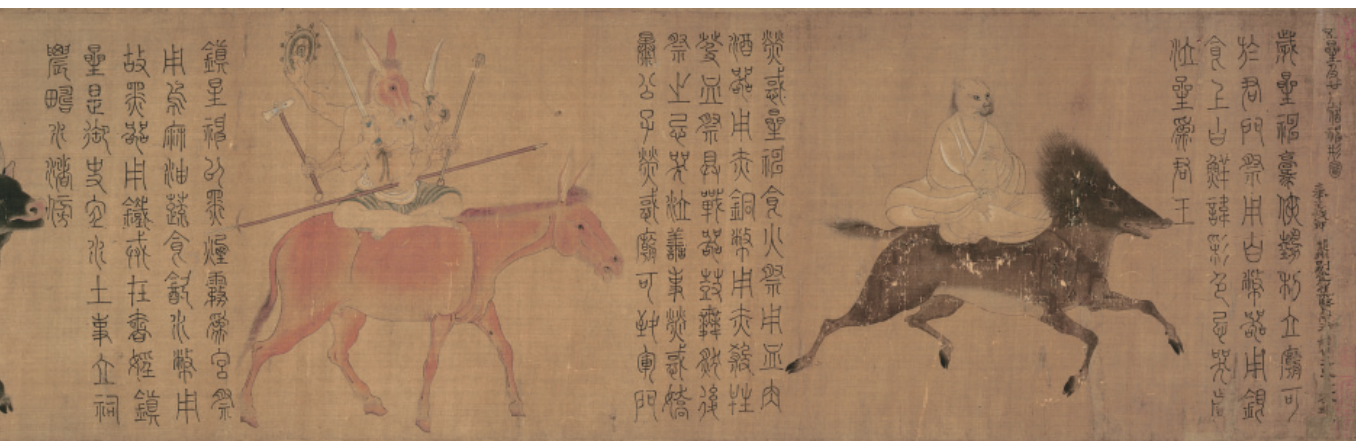 五星及廿八宿神形圖
歲星神豪俠勢利立廟可
於君門祭用白幣器用銀
食上白鮮諱彩色忌哭
泣星為君王
熒惑星神食火祭用血肉
酒器用赤銅幣用赤殺牲
血祭具戰器鼓舞然後
祭之忌哭泣善事熒惑嬌
暴公子熒惑廟可致軍門
鎮星神以黑煙霧為宮祭
用烏麻油蔬食水幣用
故黑器用鐵或在書鎮
星是御史宜水土事立祠
農疇水瀆傍